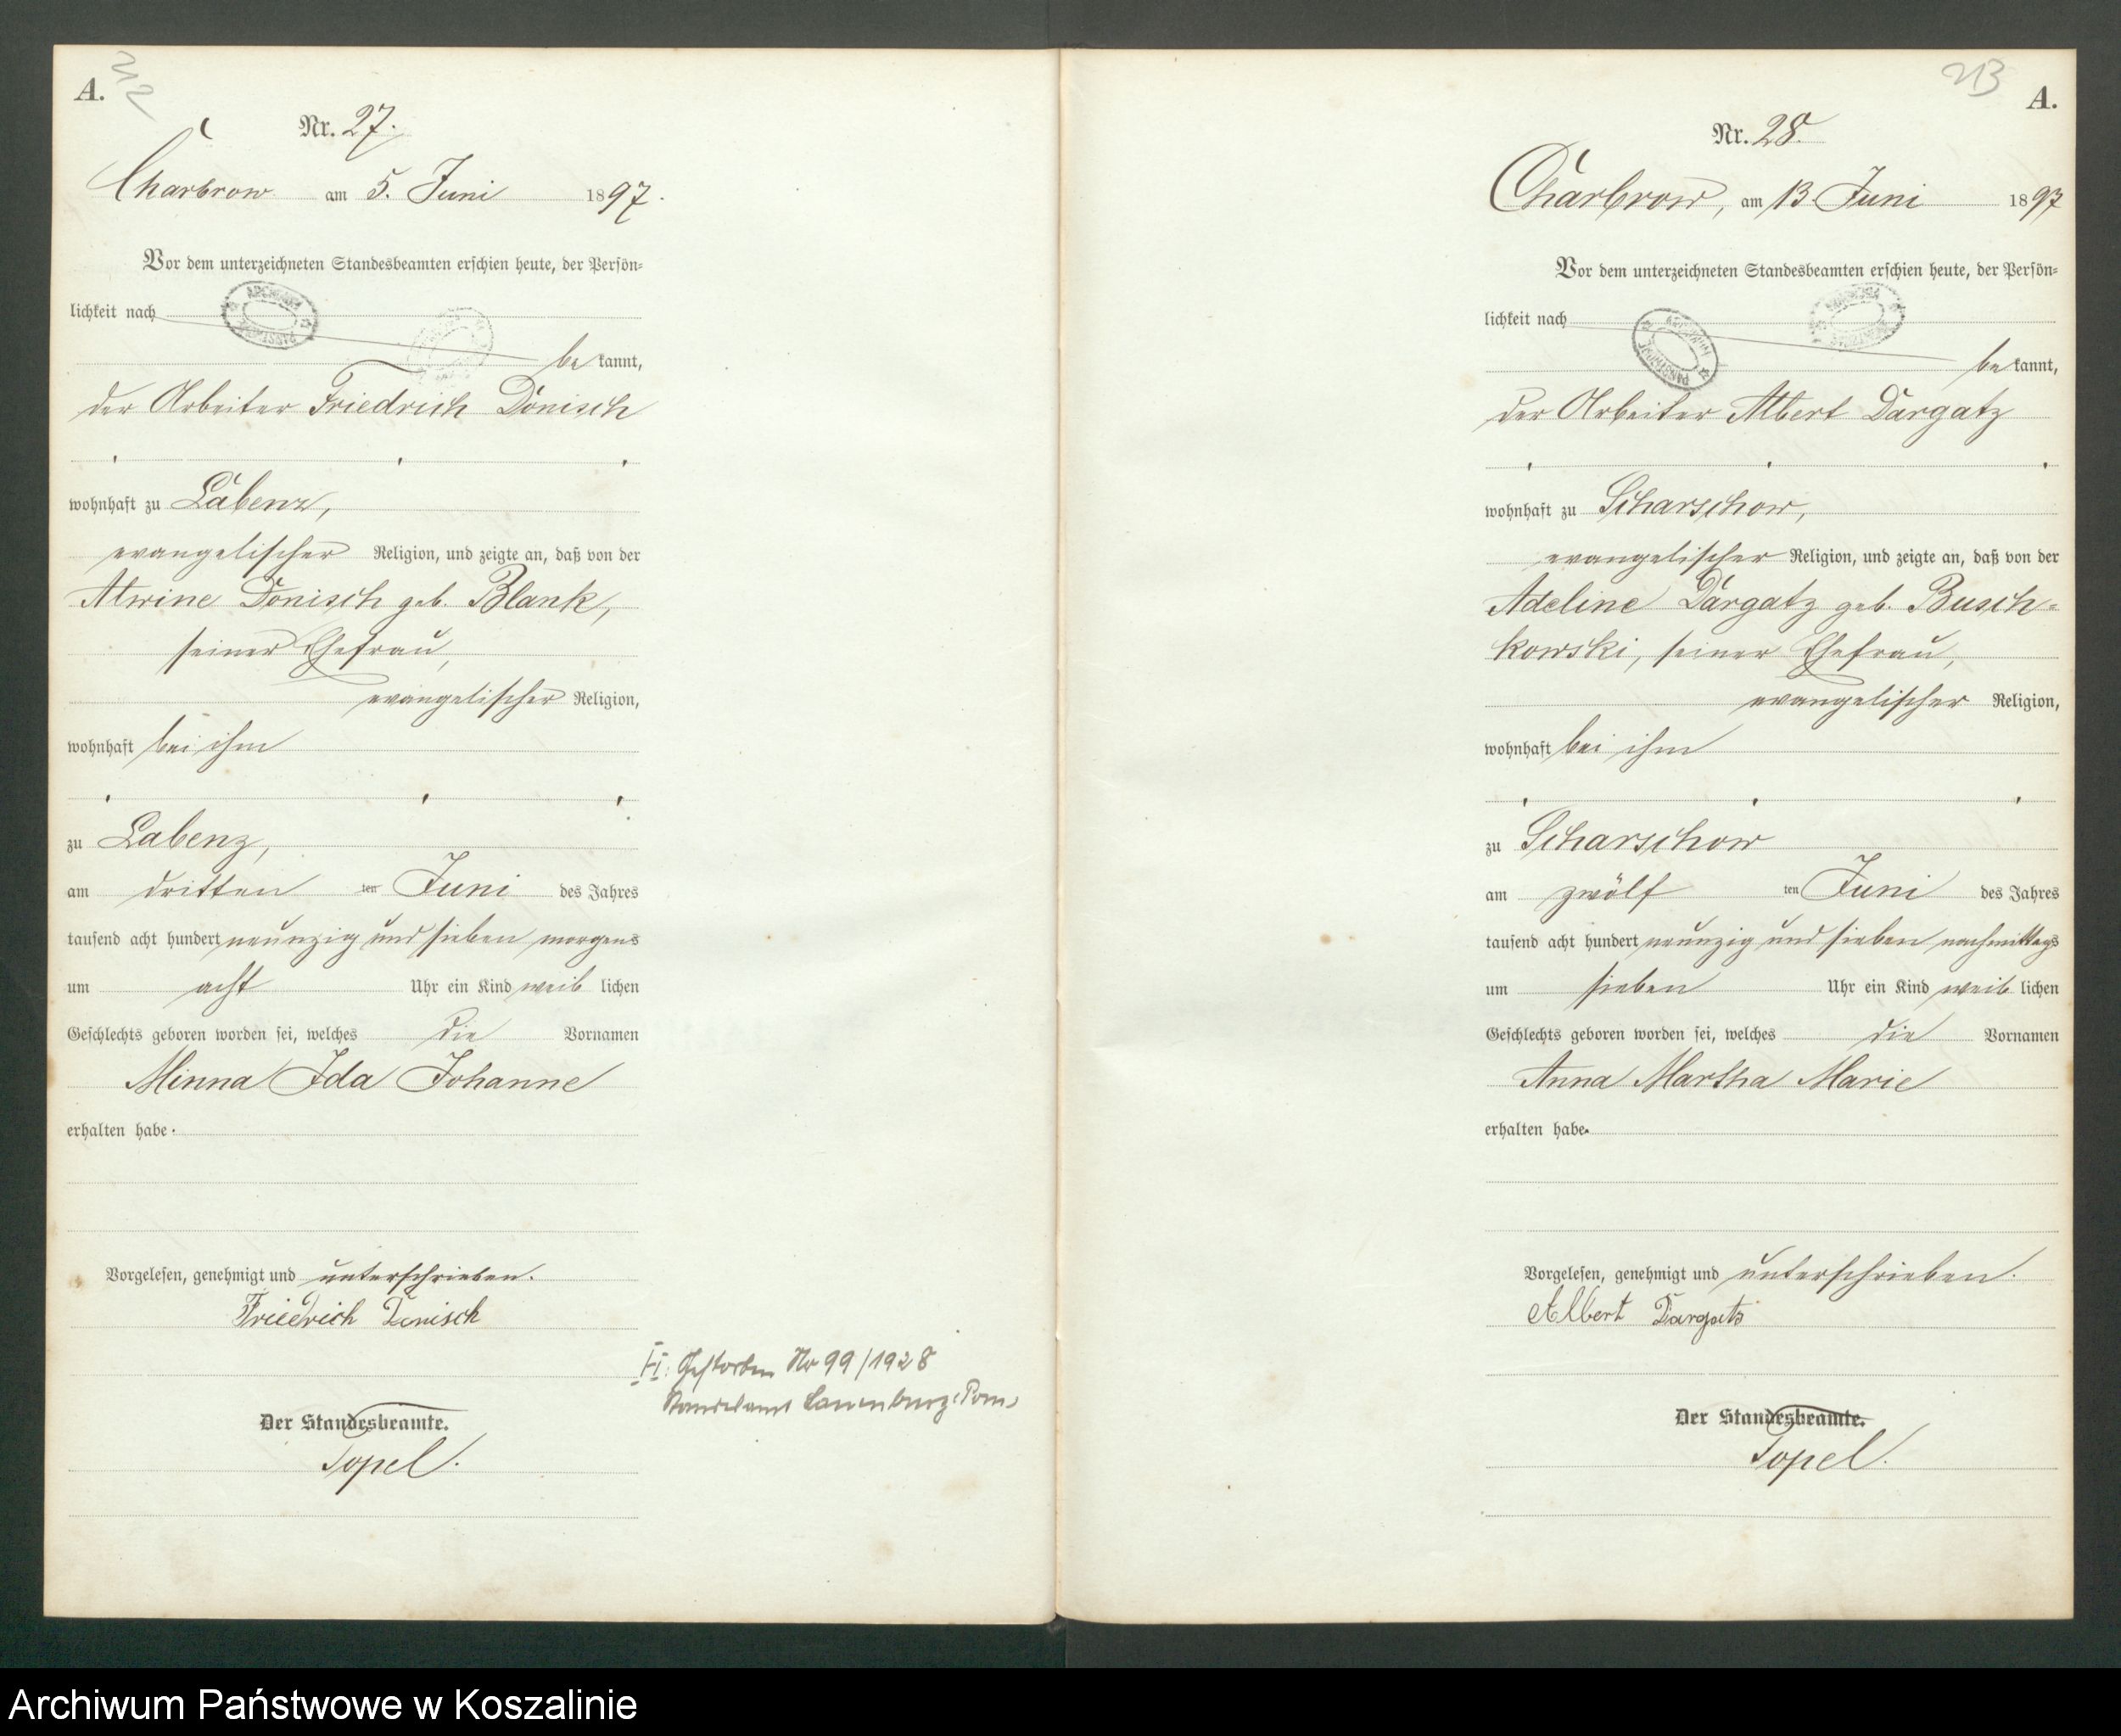 A.
212
Nr. 27.
Charbrow am 5. Juni 1897.
Vor dem unterzeichneten Standesbeamten erschien heute, der Persön-
lichkeit nach
be kannt,
der Arbeiter Friedrich Dönisch
wohnhaft zu Labenz,
evangelischer Religion, und zeigte an, daß von der
Alwine Dönisch geb. Blank,
seiner Ehefrau,
evangelischer Religion,
wohnhaft bei ihm
zu Labenz,
am dritten ten Juni des Jahres
tausend acht hundert neunzig und sieben morgens
um acht Uhr ein Kind weib lichen
Geschlechts geboren worden sei, welches die Vornamen
Minna Ida Johanne
erhalten habe.
Vorgelesen, genehmigt und unterschrieben.
Friedrich Dönisch
Der Standesbeamte.
Topel.
H: Gestorben Nr 99/1928
Standesamt Lauenburg i Pom
213
A.
Nr. 28.
Charbrow, am 13 Juni 1897
Vor dem unterzeichneten Standesbeamten erschien heute, der Persön-
lichkeit nach
be kannt,
der Arbeiter Albert Dargatz
wohnhaft zu Scharschow,
evangelischer Religion, und zeigte an, daß von der
Adeline Dargatz geb. Busch-
kowski, seiner Ehefrau,
evangelischer Religion,
wohnhaft bei ihm
zu Scharschow
am zwölf ten Juni des Jahres
tausend acht hundert neunzig und sieben nachmittags
um sieben Uhr ein Kind weib lichen
Geschlechts geboren worden sei, welches die Vornamen
Anna Martha Marie
erhalten habe.
Vorgelesen, genehmigt und unterschrieben.
Albert Dargatz
Der Standesbeamte.
Topel.
Archiwum Państwowe w Koszalinie